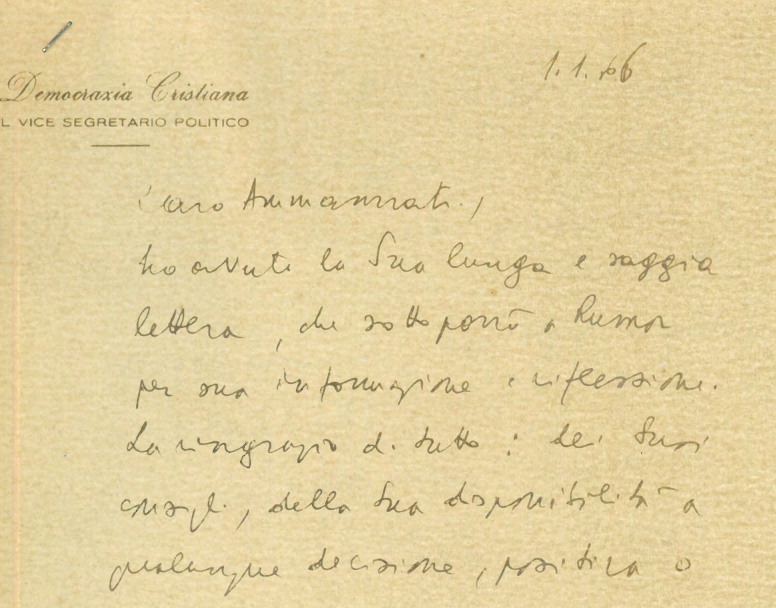 1.1.66
Democrazia Cristiana
L VICE SEGRETARIO POLITICO
Caro Ammannati,
ho avuto la Sua lunga e saggia
lettera, che sottoporrò a Rumor
per sua informazione e riflessione.
La ringrazio di tutto: dei Suoi
consigli, della Sua disponibilità a
qualunque decisione, positiva o